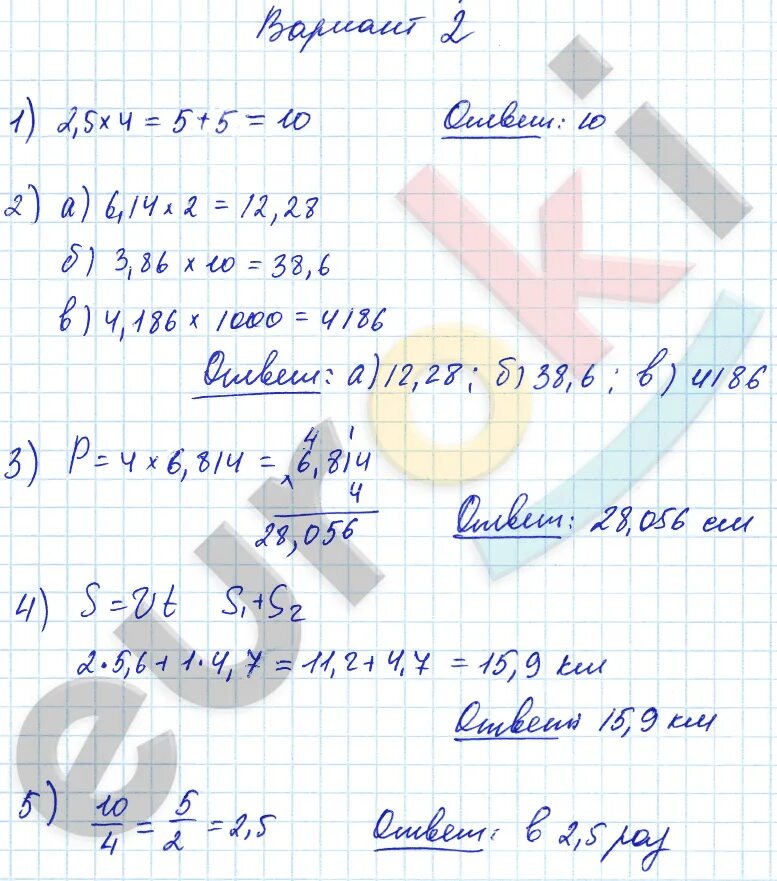 Вариант 2
1) 2,5×4 = 5+5 = 10 Ответ: 10
2) а) 6,14×2 = 12,28
б) 3,86×10 = 38,6
в) 4,186×1000 = 4186
Ответ: а) 12,28; б) 38,6; в) 4186
3) P = 4×6,814 = 6,814
4 1
× 4
28,056
Ответ: 28,056 см
4) S = Vt S₁+S₂
2·5,6+1·4,7 = 11,2+4,7 = 15,9 км
Ответ: 15,9 км
5) 10/4 = 5/2 = 2,5 Ответ: в 2,5 раз
euroki